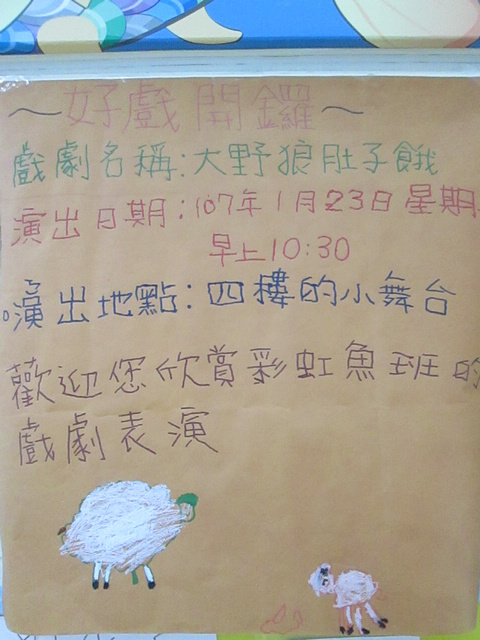 ~好戲開鑼~
戲劇名稱:大野狼肚子餓
演出日期:107年1月23日星期
早上10:30
演出地點:四樓的小舞台
歡迎您欣賞彩虹魚班的
戲劇表演